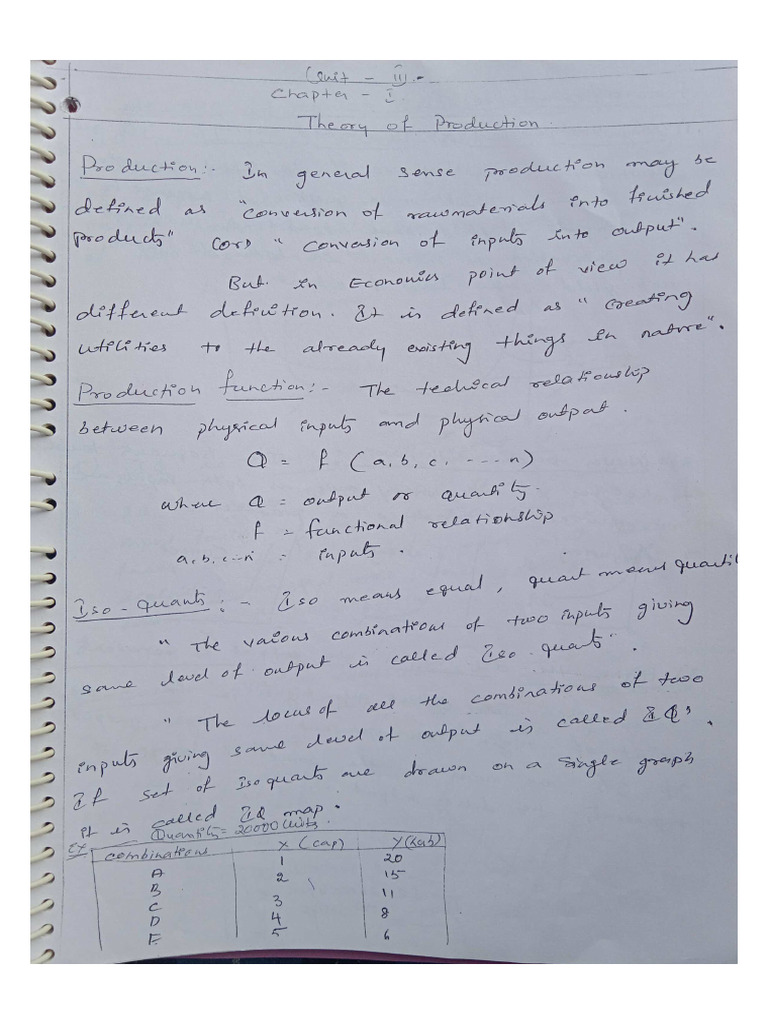 Unit - III.-
Chapter - I.
Theory of Production.
Production:- In general sense production may be
defined as "conversion of rawmaterials into finished
products" (or) "conversion of inputs into output".
But in Economics point of view it has
different definition. It is defined as "creating
utilities to the already existing things in nature".
Production function:- The techical relationship
between physical inputs and physical output.
Q = f (a, b, c, ---- n)
where Q = output or quantity.
f = functional relationship
a, b, c...n = inputs.
Iso-Quants:- Iso means equal, quant means quantit
"The vaious combinations of two inputs giving
same level of output is called Iso-quants".
"The locus of all the combinations of two
inputs giving same level of output is called IQ's.
If set of isoquants are drawn on a single graph
it is called IQ map.
Ex: Quantity = 20000 Units.
combinations X (cap) Y (Lab)
A 1 20
B 2 15
C 3 11
D 4 8
E 5 6